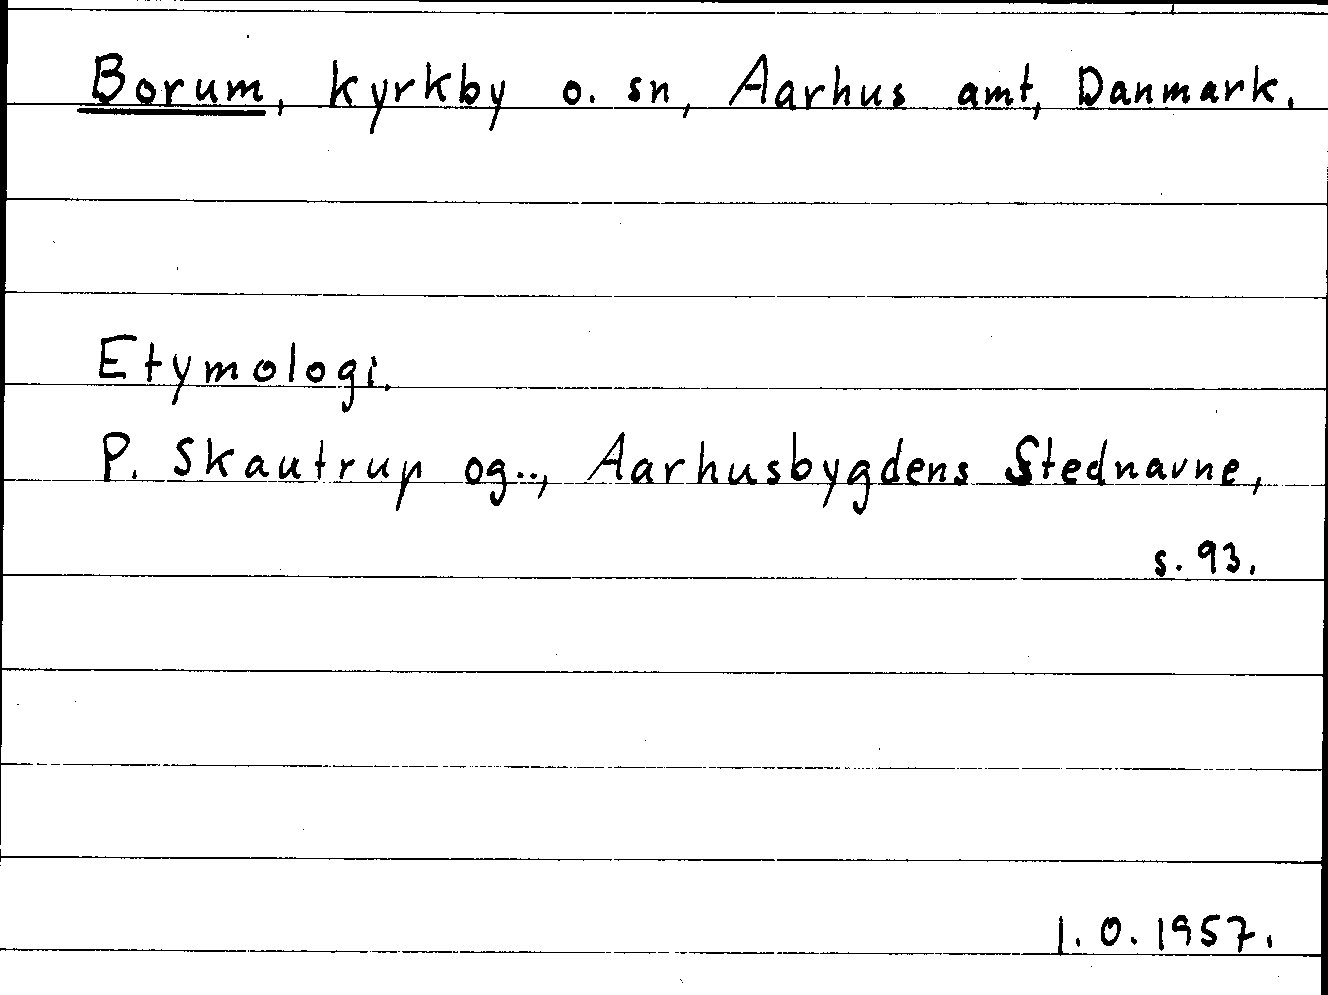 Borum, kyrkby o. sn, Aarhus amt, Danmark.
Etymologi.
P. Skautrup og.., Aarhusbygdens Stednavne,
s. 93.
I. O. 1957.